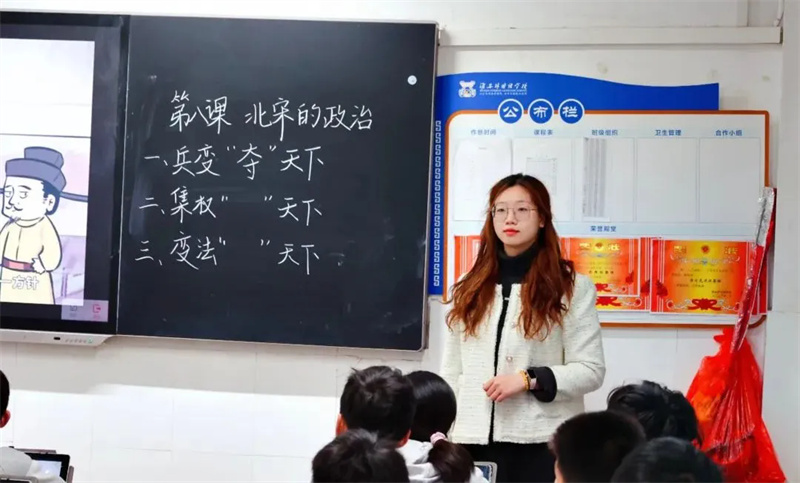 第八课 北宋的政治
一、兵变“夺”天下
二、集权“ ”天下
三、变法“ ”天下
一方针
公布栏
作息时间
课程表
班级组织
卫生管理
合作小组
荣誉殿堂